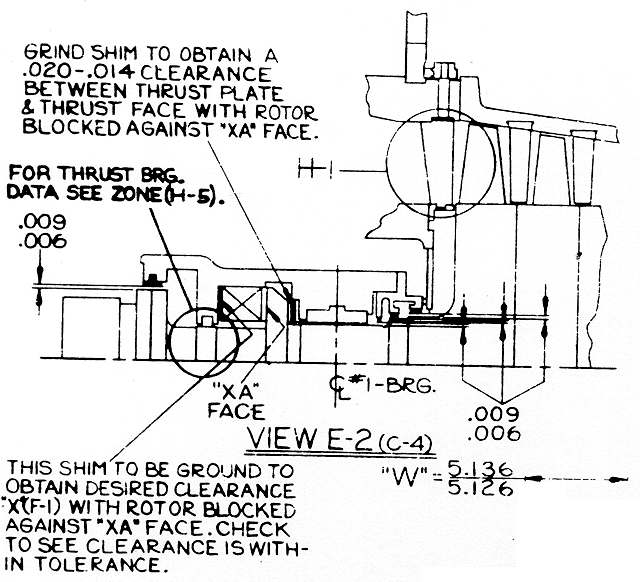 GRIND SHIM TO OBTAIN A
.020-.014 CLEARANCE
BETWEEN THRUST PLATE
& THRUST FACE WITH ROTOR
BLOCKED AGAINST "XA" FACE.
H-1
FOR THRUST BRG.
DATA SEE ZONE(H-5).
.009
.006
"XA"
FACE
℄ #1-BRG.
.009
.006
VIEW E-2 (C-4)
"W" = 5.136
5.126
THIS SHIM TO BE GROUND TO
OBTAIN DESIRED CLEARANCE
"X"(F-1) WITH ROTOR BLOCKED
AGAINST "XA" FACE. CHECK
TO SEE CLEARANCE IS WITH-
IN TOLERANCE.